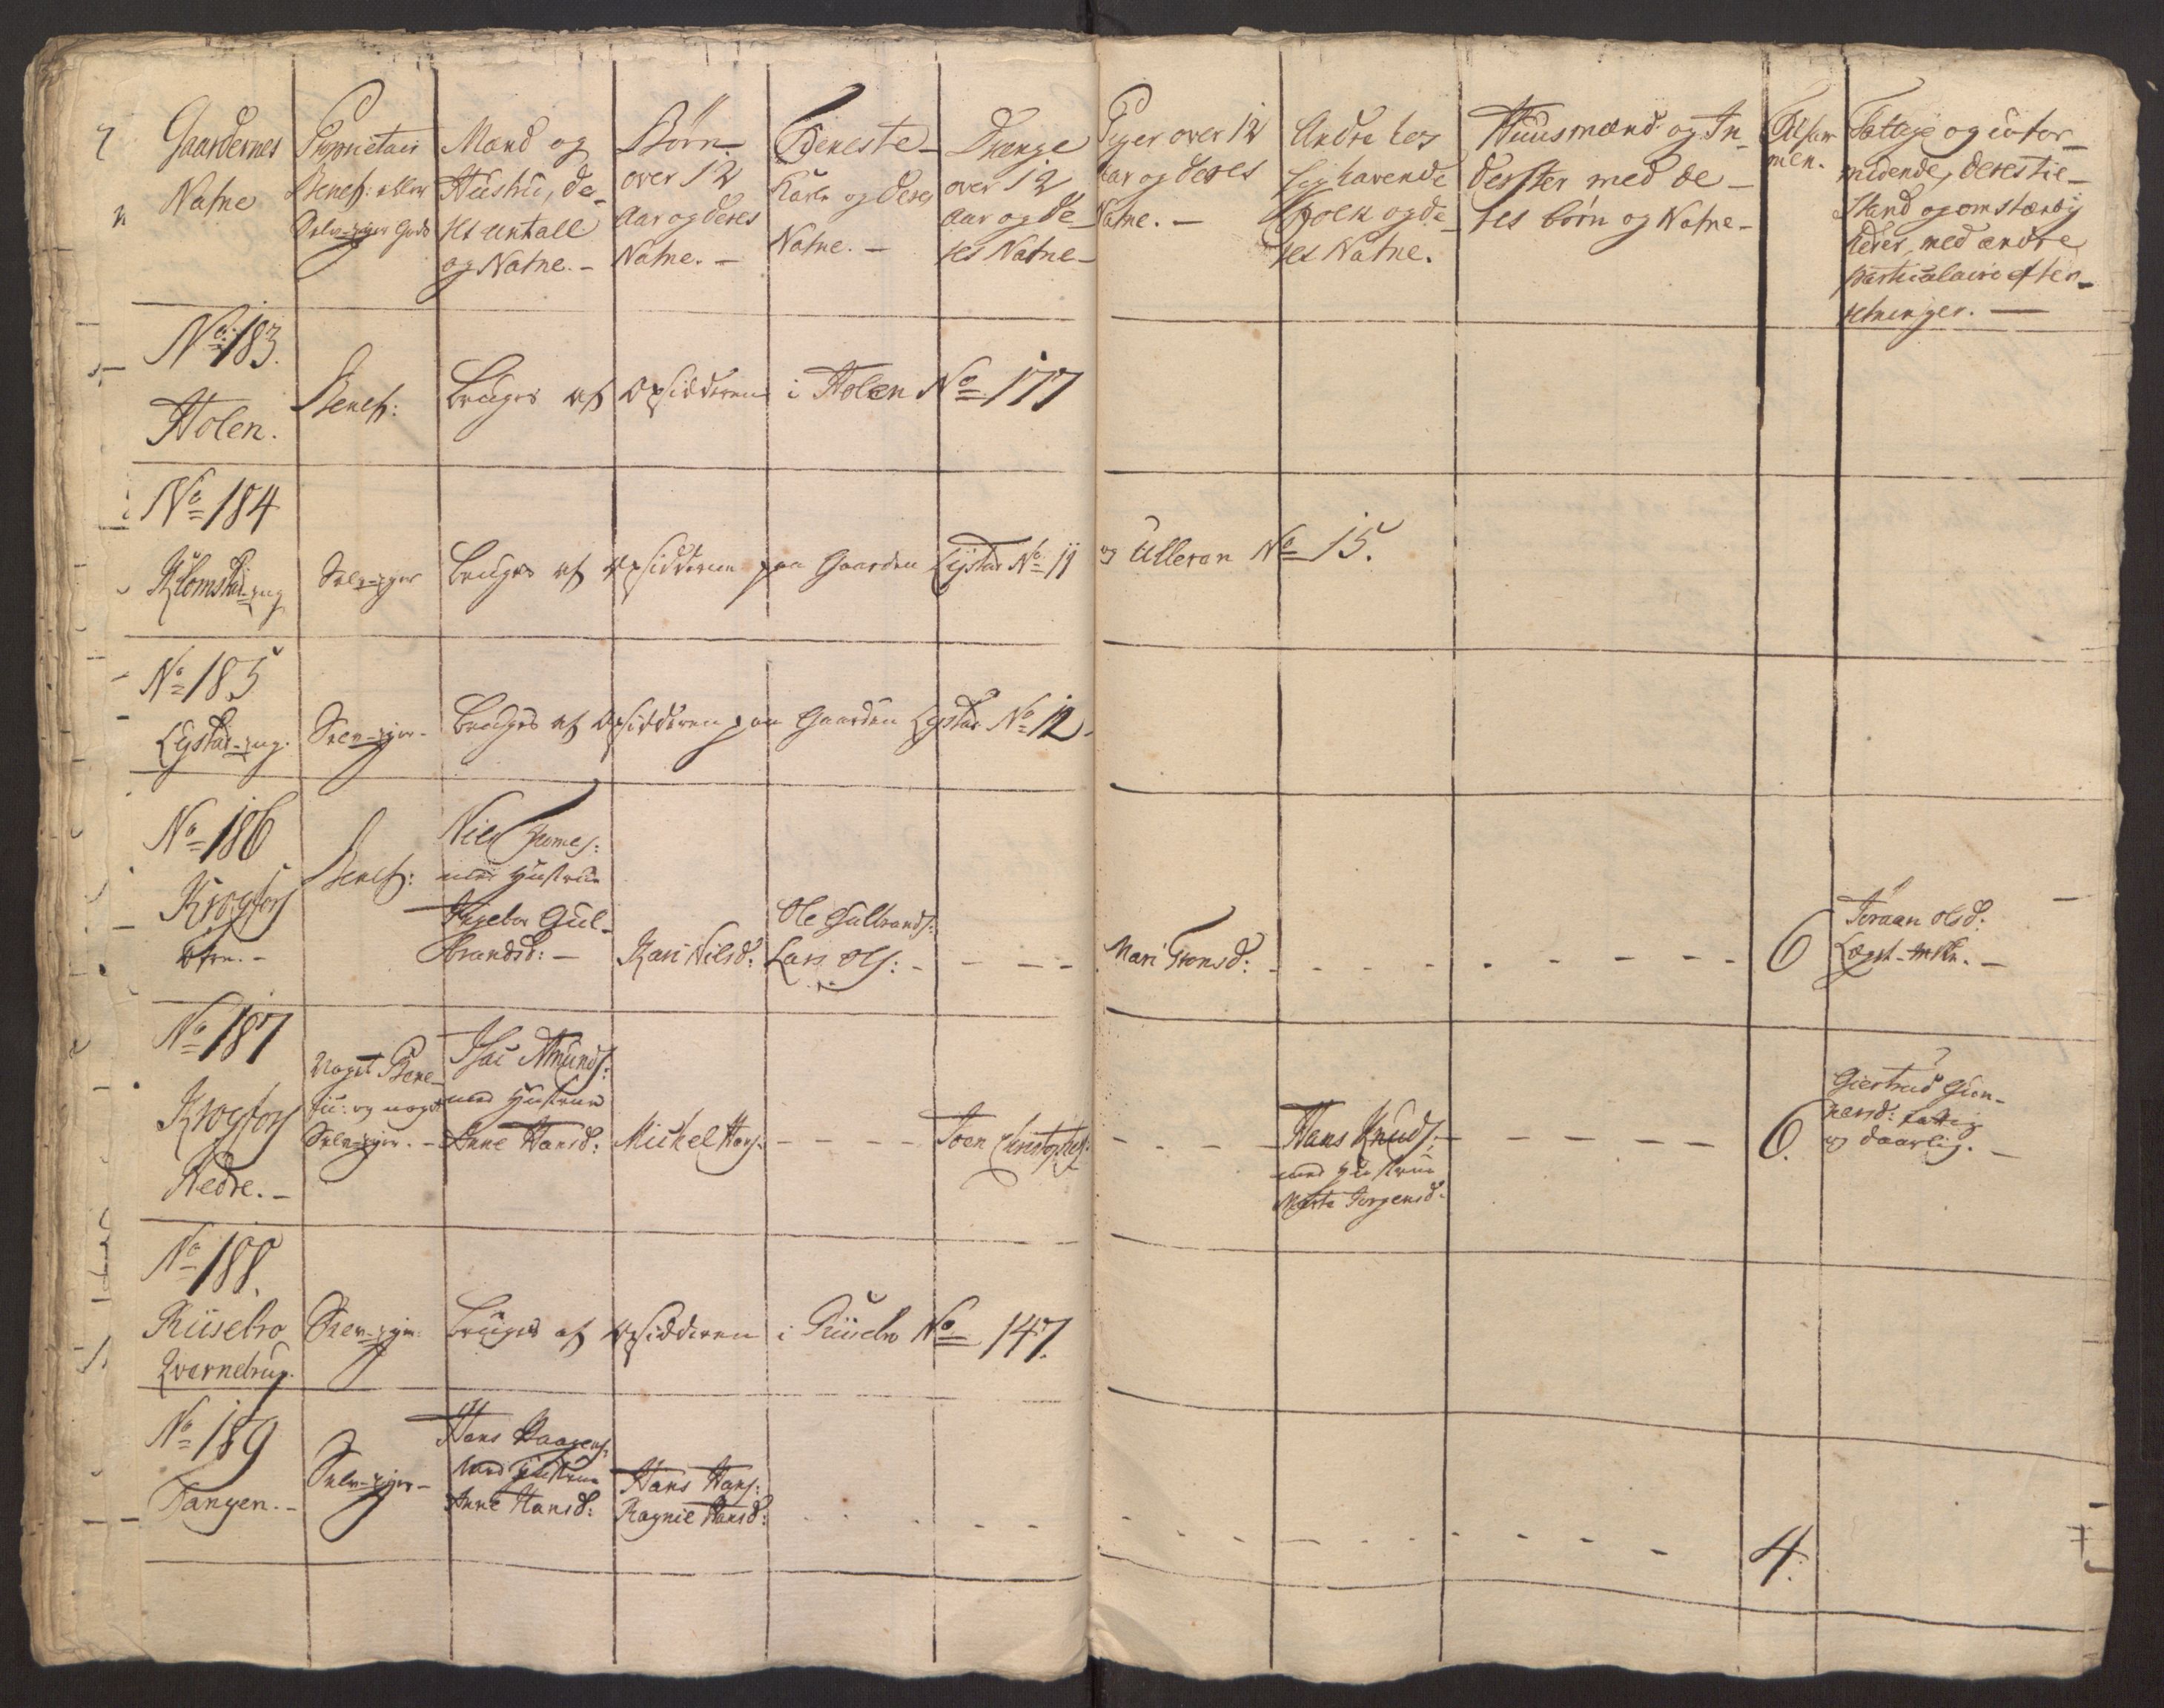 Gaardernes
Nafne
Proprietair
Benef: eller
Selv-ejer Gods
Mand og
Hustru, de-
res antall
og Nafne. -
Børn
over 12
Aar og deres
Nafne. -
Tieneste-
Karle og deres
Nafne. -
Drenge
over 12
Aar og de-
res Nafne -
Piger over 12
Aar og deres
Nafne. -
Andre hos
sig havende
Folk og de-
res Nafne.
Huusmænd og In-
derster med de-
res børn og Nafne -
Tilsam
men.
Fattige og ufor-
muende, deres tie-
Stand og omstændig
heder, med andre
particulaire efter-
retninger. -
No 183.
Holen.
Benef:
bruges af Opsidderen i Holen No 177
No 184
Klomstad-eng
Selv-ejer
bruges af Opsidderen paa Gaarden Lystad No 11 og Ulleron No 15.
No 185
Lystad-eng.
Selv-ejer -
bruges af Opsidderen paa Gaarden Lystad No 12.
No 186
Krogfos
øfre. -
Benef:
Niels Tomes:
med Hustrue
Ingebor Gul-
brandsd: -
Kari Nilsd:
Ole Gulbrands:
Lars Ols: -
Mari Tronsd:
6
Joraan Olsd:
Lægd-
No 187
Krogfos
Nedre. -
noget Bene-
fic: og noget
Selv-ejer. -
Isac Amunds:
med Hustrue
Anne Hansd:
Mickel Hans:
Joen Christophes:
Hans Knuds:
med Hustrue
Marte Jorgensd:
6.
Giertrud Gun-
nersd: fattig
og daarlig. -
No 188.
Riisebro
Qvernebrug.
Selv-ejer:
bruges af Opsidderen i Riisebro No 147.
No 189
Tangen. -
Selv-ejer -
Hans Haagens:
med Hustrue
Anne Hansd:
Hans Hans:
Ragnie Hansd:
4.